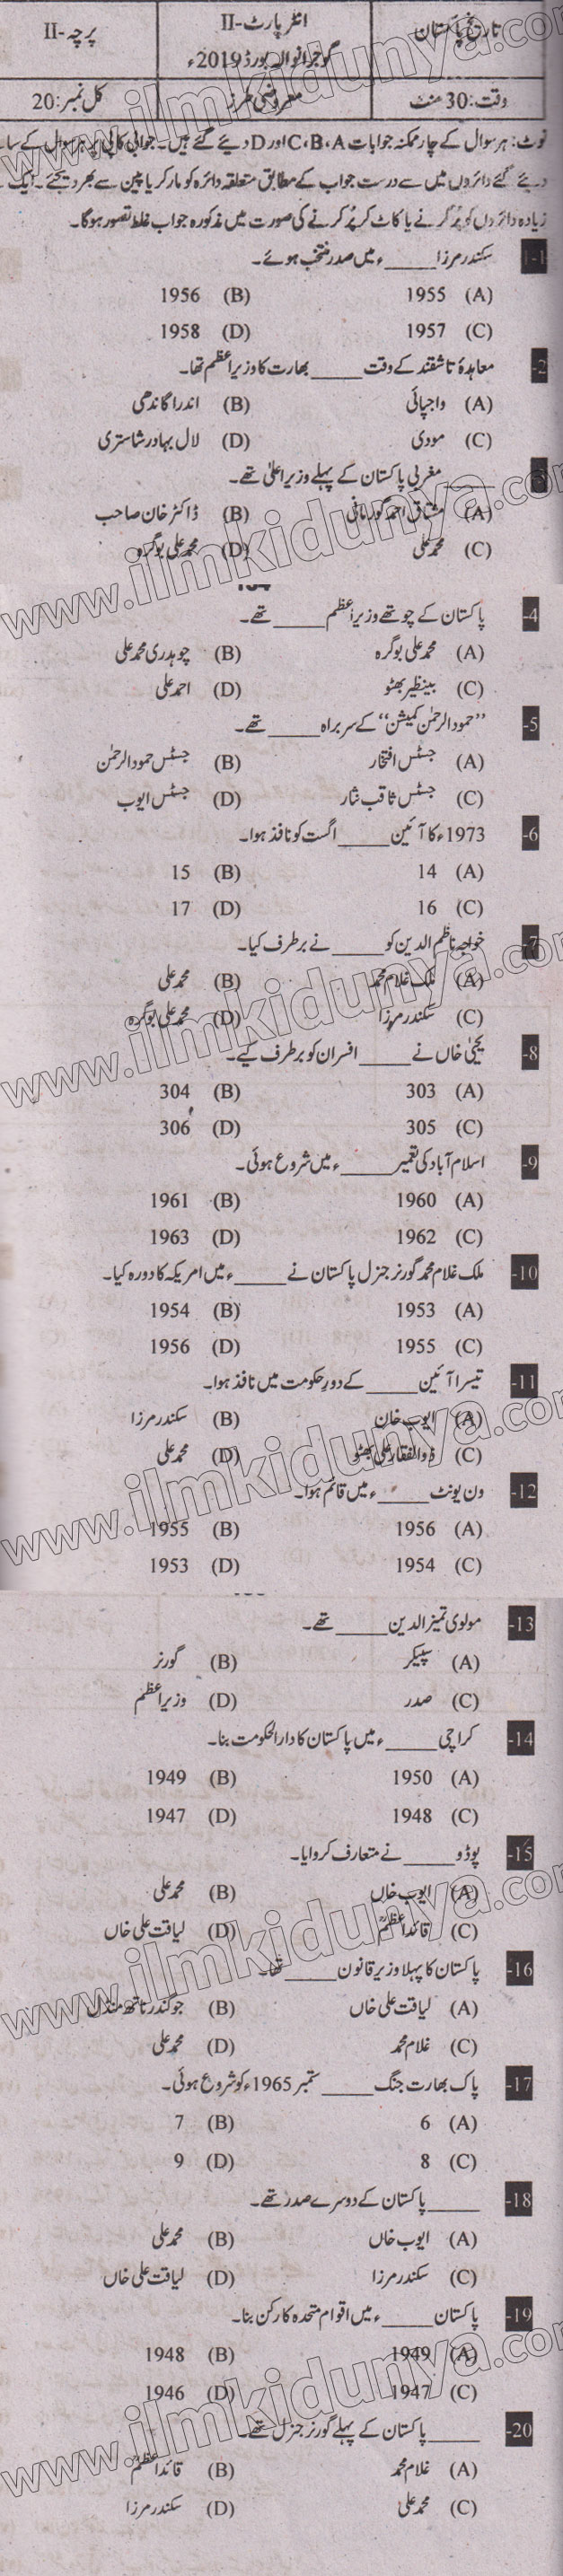 تاریخ پاکستان
انٹر پارٹ-II
پرچہ-II
گوجرانوالہ بورڈ 2019ء
وقت: 30 منٹ
معروضی طرز
کل نمبر: 20
نوٹ: ہر سوال کے چار ممکنہ جوابات C، B، A اور D دیئے گئے ہیں۔ جوابی کاپی پر ہر سوال کے سا
دیئے گئے دائروں میں سے درست جواب کے مطابق متعلقہ دائرہ کو مارکر یا پین سے بھر دیجئے۔ ایک
زیادہ دائروں کو پُر کرنے یا کاٹ کر پُر کرنے کی صورت میں مذکورہ جواب غلط تصور ہوگا۔
1-1 سکندر مرزا _____ء میں صدر منتخب ہوئے۔
(A) 1955 (B) 1956
(C) 1957 (D) 1958
-2 معاہدۂ تاشقند کے وقت _____ بھارت کا وزیراعظم تھا۔
(A) واجپائی (B) اندرا گاندھی
(C) مودی (D) لال بہادر شاستری
_____ مغربی پاکستان کے پہلے وزیراعلیٰ تھے۔
(A) مشتاق احمد گورمانی (B) ڈاکٹر خان صاحب
(C) محمد علی (D) محمد علی بوگرہ
-4 پاکستان کے چوتھے وزیراعظم _____ تھے۔
(A) محمد علی بوگرہ (B) چوہدری محمد علی
(C) بینظیر بھٹو (D) احمد علی
-5 ”حمود الرحمٰن کمیشن“ کے سربراہ _____ تھے۔
(A) جسٹس افتخار (B) جسٹس حمود الرحمٰن
(C) جسٹس ثاقب نثار (D) جسٹس ایوب
-6 1973ء کا آئین _____ اگست کو نافذ ہوا۔
(A) 14 (B) 15
(C) 16 (D) 17
-7 خواجہ ناظم الدین کو _____ نے برطرف کیا۔
(A) ملک غلام محمد (B) محمد علی
(C) سکندر مرزا (D) محمد علی بوگرہ
-8 یحییٰ خاں نے _____ افسران کو برطرف کیے۔
(A) 303 (B) 304
(C) 305 (D) 306
-9 اسلام آباد کی تعمیر _____ء میں شروع ہوئی۔
(A) 1960 (B) 1961
(C) 1962 (D) 1963
-10 ملک غلام محمد گورنر جنرل پاکستان نے _____ء میں امریکہ کا دورہ کیا۔
(A) 1953 (B) 1954
(C) 1955 (D) 1956
-11 تیسرا آئین _____ کے دورِ حکومت میں نافذ ہوا۔
(A) ایوب خان (B) سکندر مرزا
(C) ذوالفقار علی بھٹو (D) محمد علی
-12 ون یونٹ _____ء میں قائم ہوا۔
(A) 1956 (B) 1955
(C) 1954 (D) 1953
-13 مولوی تمیز الدین _____ تھے۔
(A) سپیکر (B) گورنر
(C) صدر (D) وزیراعظم
-14 کراچی _____ء میں پاکستان کا دارالحکومت بنا۔
(A) 1950 (B) 1949
(C) 1948 (D) 1947
-15 پوڈو _____ نے متعارف کروایا۔
(A) ایوب خاں (B) محمد علی
(C) قائداعظمؒ (D) لیاقت علی خاں
-16 پاکستان کا پہلا وزیر قانون _____ تھا۔
(A) لیاقت علی خاں (B) جوگندر ناتھ منڈل
(C) غلام محمد (D) محمد علی
-17 پاک بھارت جنگ _____ ستمبر 1965ء کو شروع ہوئی۔
(A) 6 (B) 7
(C) 8 (D) 9
-18 _____ پاکستان کے دوسرے صدر تھے۔
(A) ایوب خاں (B) محمد علی
(C) سکندر مرزا (D) لیاقت علی خاں
-19 پاکستان _____ء میں اقوام متحدہ کا رکن بنا۔
(A) 1949 (B) 1948
(C) 1947 (D) 1946
-20 _____ پاکستان کے پہلے گورنر جنرل تھے۔
(A) غلام محمد (B) قائداعظمؒ
(C) محمد علی (D) سکندر مرزا
www.ilmkidunya.com
www.ilmkidunya.com
www.ilmkidunya.com
www.ilmkidunya.com
www.ilmkidunya.com
www.ilmkidunya.com